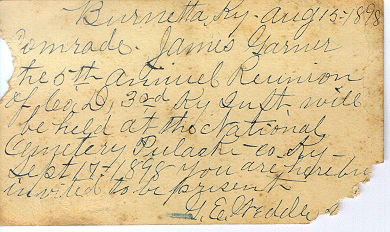 Burnetta, Ky - Aug 15 - 1898
Comrade. James Garner
the 5th annuel Reunion
of Co. D, 32nd Ky Inft will
be held at the National
Cemetery Pulaski - co. Ky -
Sept 17 - 1898 you are hereby
invited to be present
G. E. Weddle